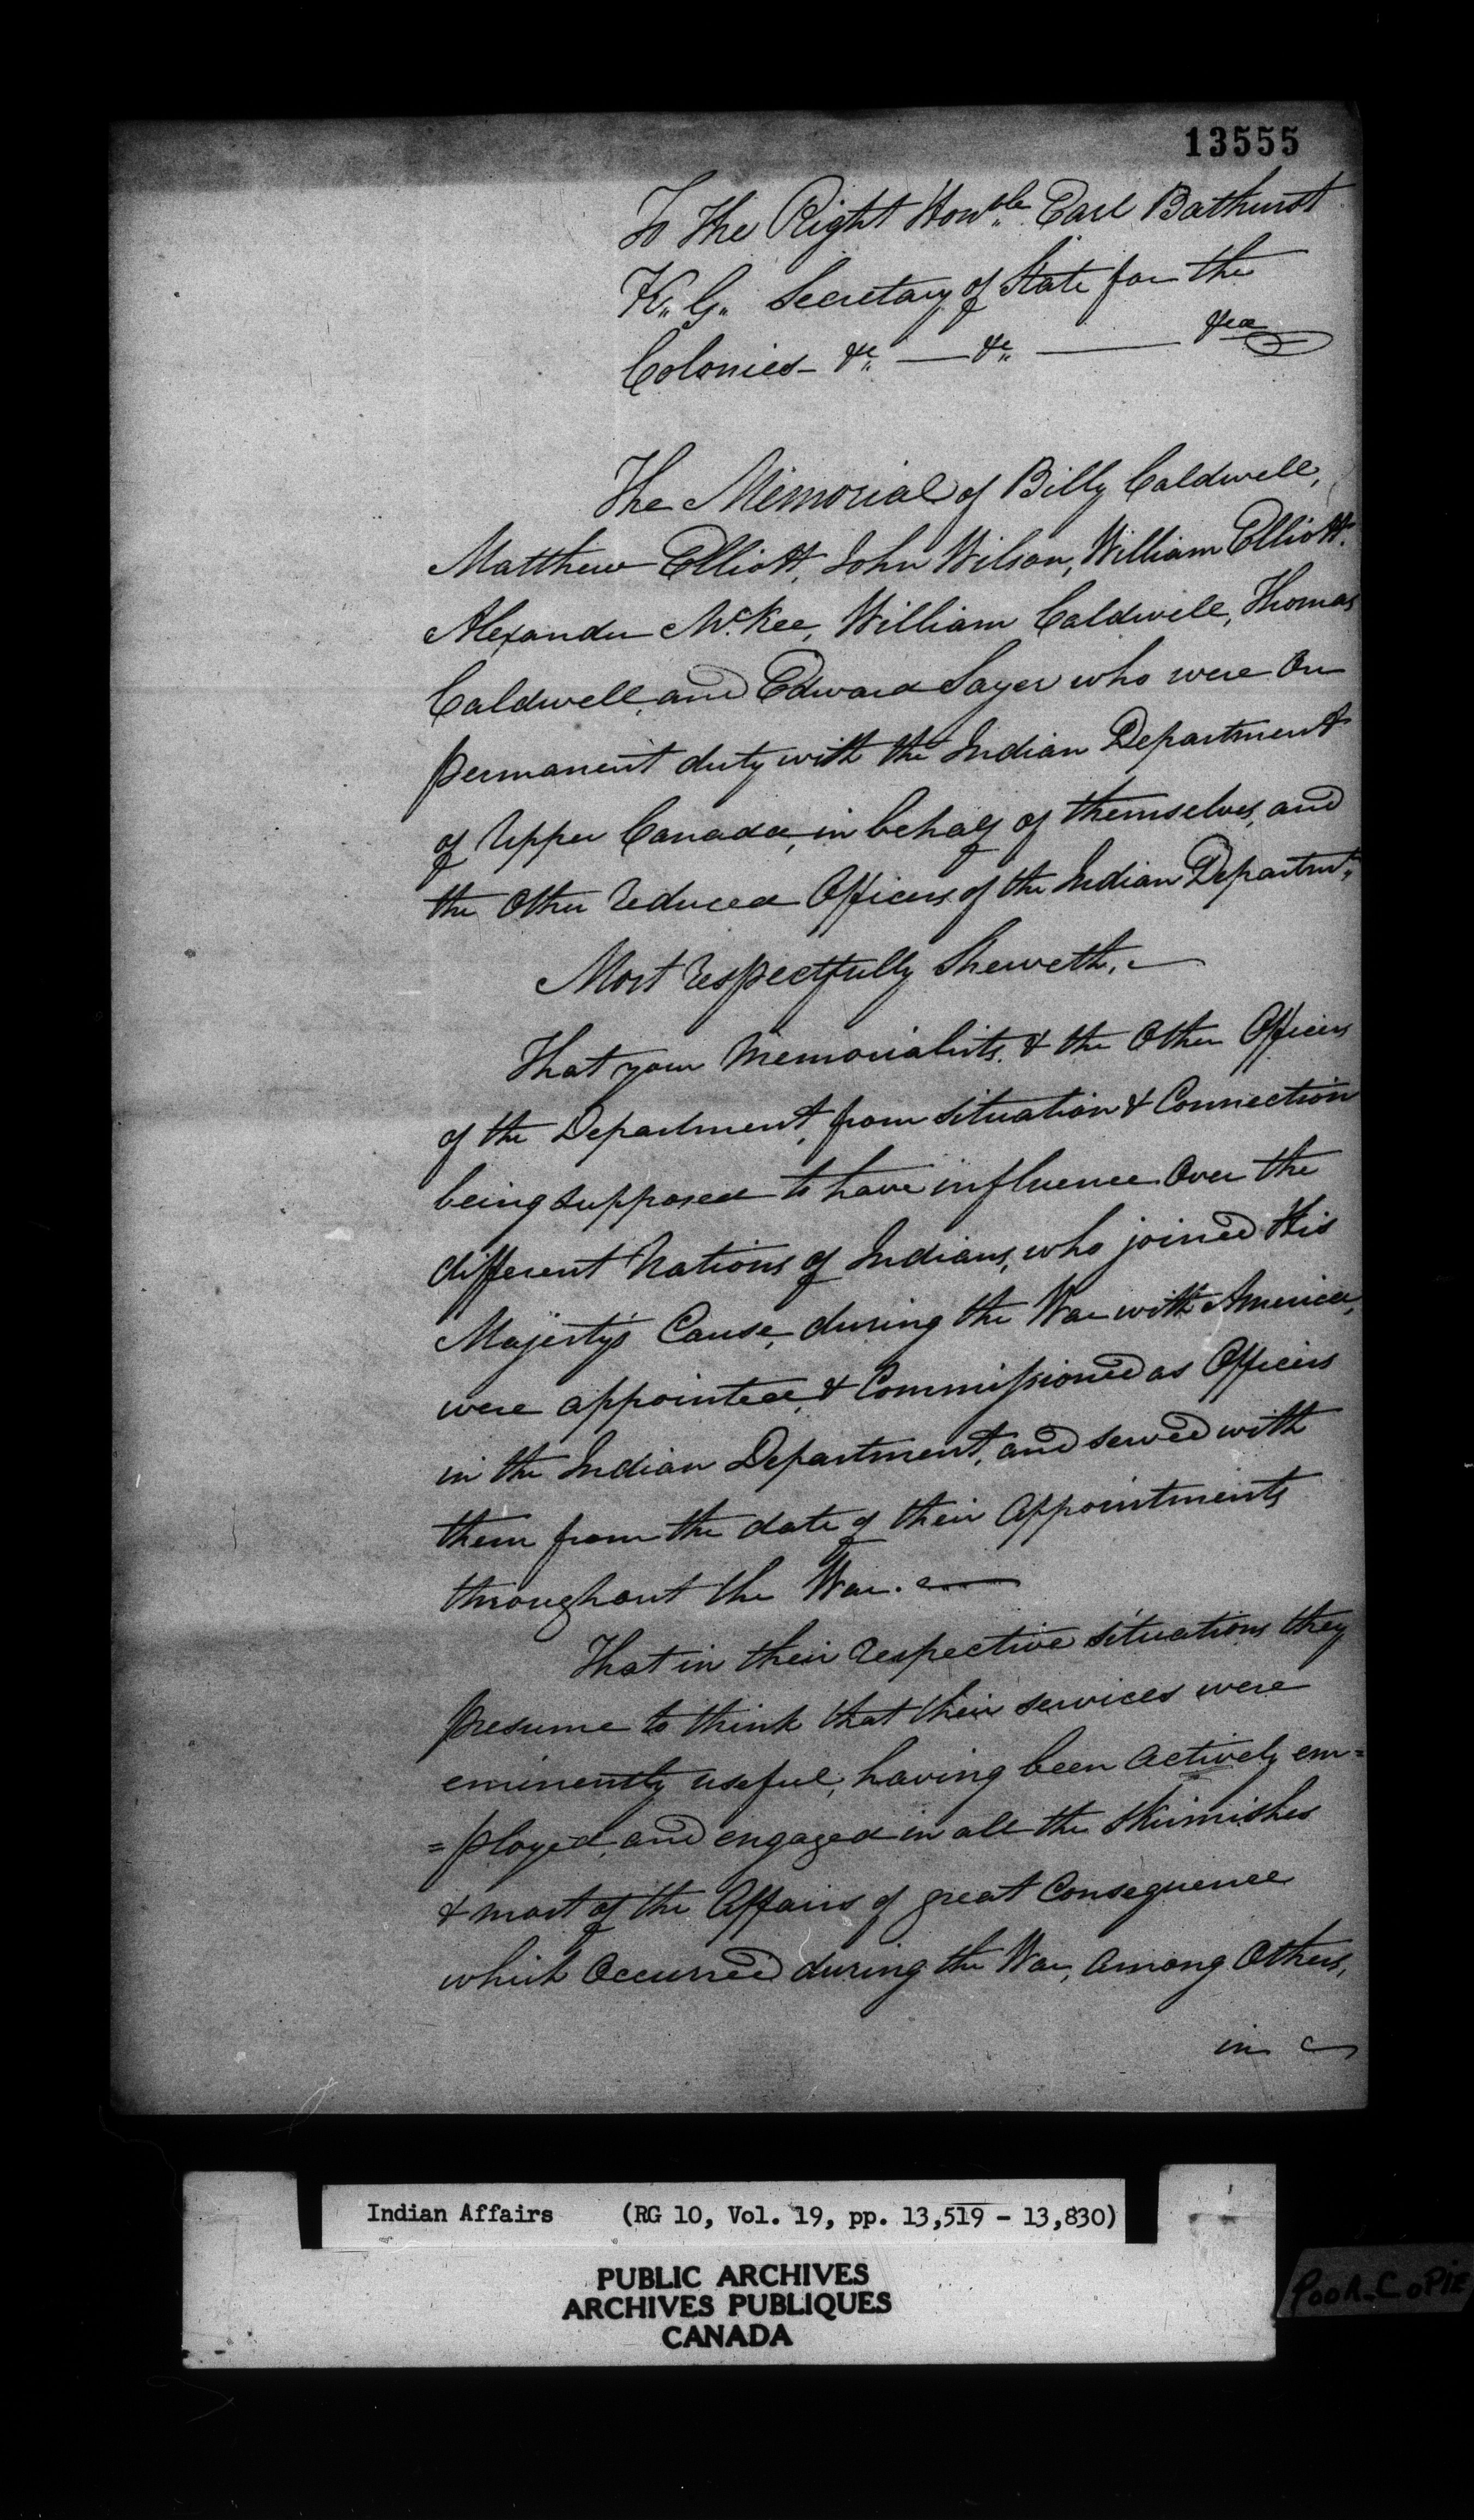 13555
To The Right Honble. Earl Bathurst
K.. G.. Secretary of State for the
Colonies - &c. — &c. — &ca
The Memorial of Billy Caldwell,
Matthew Elliott, John Wilson, William Elliott.
Alexander McKee, William Caldwell, Thomas
Caldwell, and Edward Sayer who were on
permanent duty with the Indian Department
of Upper Canada, in behalf of themselves, and
the Other reduced Officers of the Indian Departmt..
Most respectfully Sheweth. —
That your Memorialists. & the Other Officers
of the Department, from situation & Connection
being supposed to have influence Over the
different Nations of Indians, who joined His
Majesty's Cause, during the War with America,
were appointed, & Commissioned as Officers
in the Indian Department, and served with
them from the date of their Appointments
throughout the War. —
That in their respective situations they
presume to think that their services were
eminently useful, having been actively em=
=ployed, and engaged in all the Skirmishes
& most of the Affairs of great Consequence
which Occurred during the War, among Others,
in
Indian Affairs (RG 10, Vol. 19, pp. 13,519 - 13,830)
PUBLIC ARCHIVES
ARCHIVES PUBLIQUES
CANADA
POOR COPIE